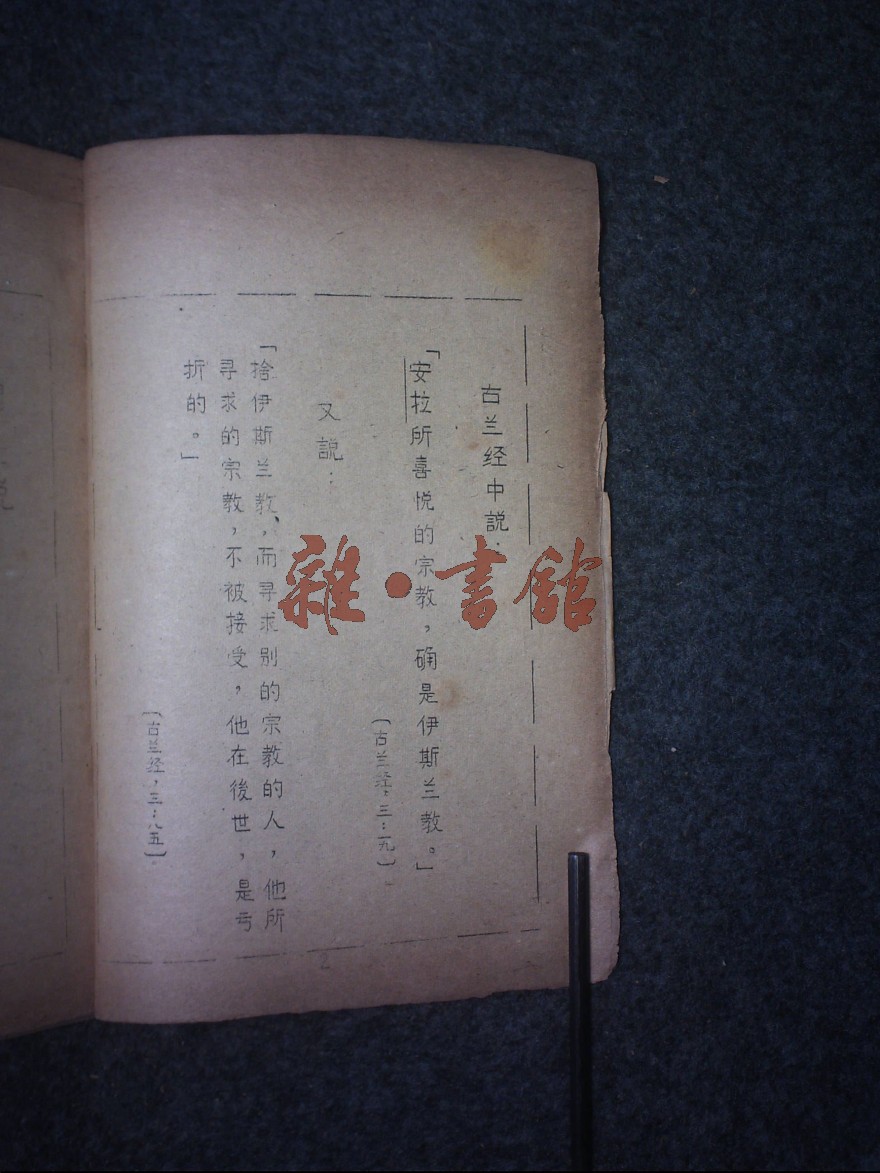 古兰经中説：
「安拉所喜悦的宗教，确是伊斯兰教。」
〔古兰经，三：一九〕
又説：
「捨伊斯兰教，而寻求别的宗教的人，他所
寻求的宗教，不被接受，他在後世，是亏
折的。」
〔古兰经，三：八五〕
雜·書館